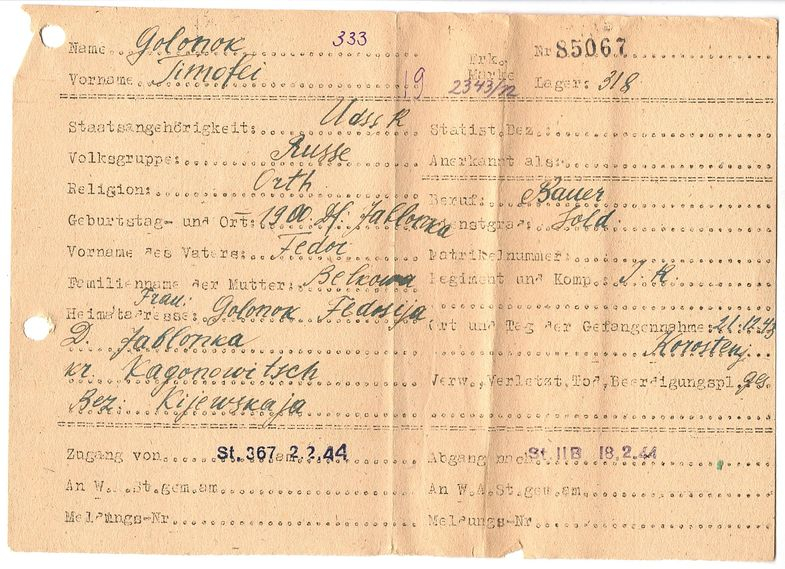 Name Golonok 333
Vorname Timofei
19
Erk.
Marke
2343/12
Nr 85067
Lager: 318
Staatsangehörigkeit: UdssR
Volksgruppe: Russe
Religion: Orth
Geburtstag- und Ort: 1900. Df. Jablonka
Vorname des Vaters: Fedor
Familienname der Mutter: Belkowa
Frau:
Heimatadresse: Golonok Fedosija
D. Jablonka
kr. Kagonowitsch
Bez: Kijewskaja
Statist.Bez.:
Anerkannt als:
Beruf: Bauer
Dienstgrad: Sold.
Matrikelnummer:
Regiment und Komp.: I. R
Ort und Tag der Gefangennahme: 21.12.43
Korostenj
Verw., Verletzt, Tod, Beerdigungspl. gs.
Zugang von St. 367 am 2.2.44
An W.A.St.gem.am
Meldungs-Nr
Abgang nach St. IIB 18.2.44
An W.A.St.gem.am
Meldungs-Nr